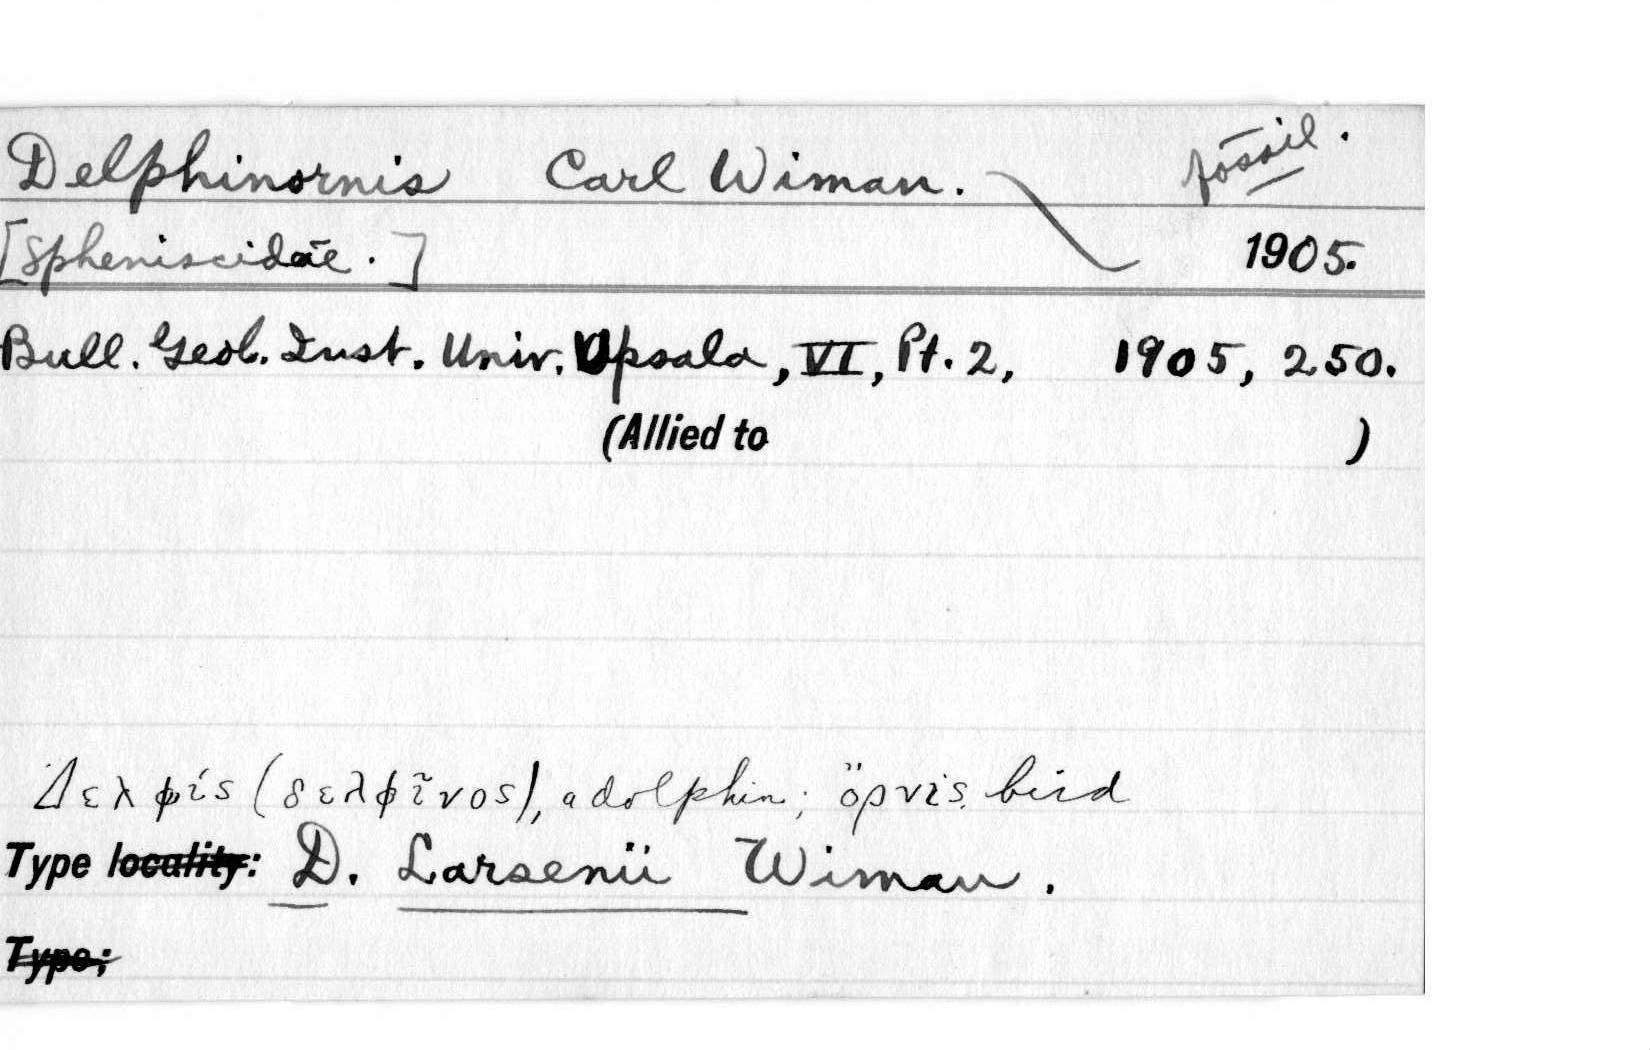 Delphinornis Carl Wiman. fossil.
[Spheniscidae.] 1905.
Bull. Geol. Inst. Univ. Upsala, VI, Pt. 2, 1905, 250.
(Allied to )
Δελφίς (δελφῖνος), a dolphin; ὄρνις, bird
Type locality: D. Larsenii Wiman.
Type: